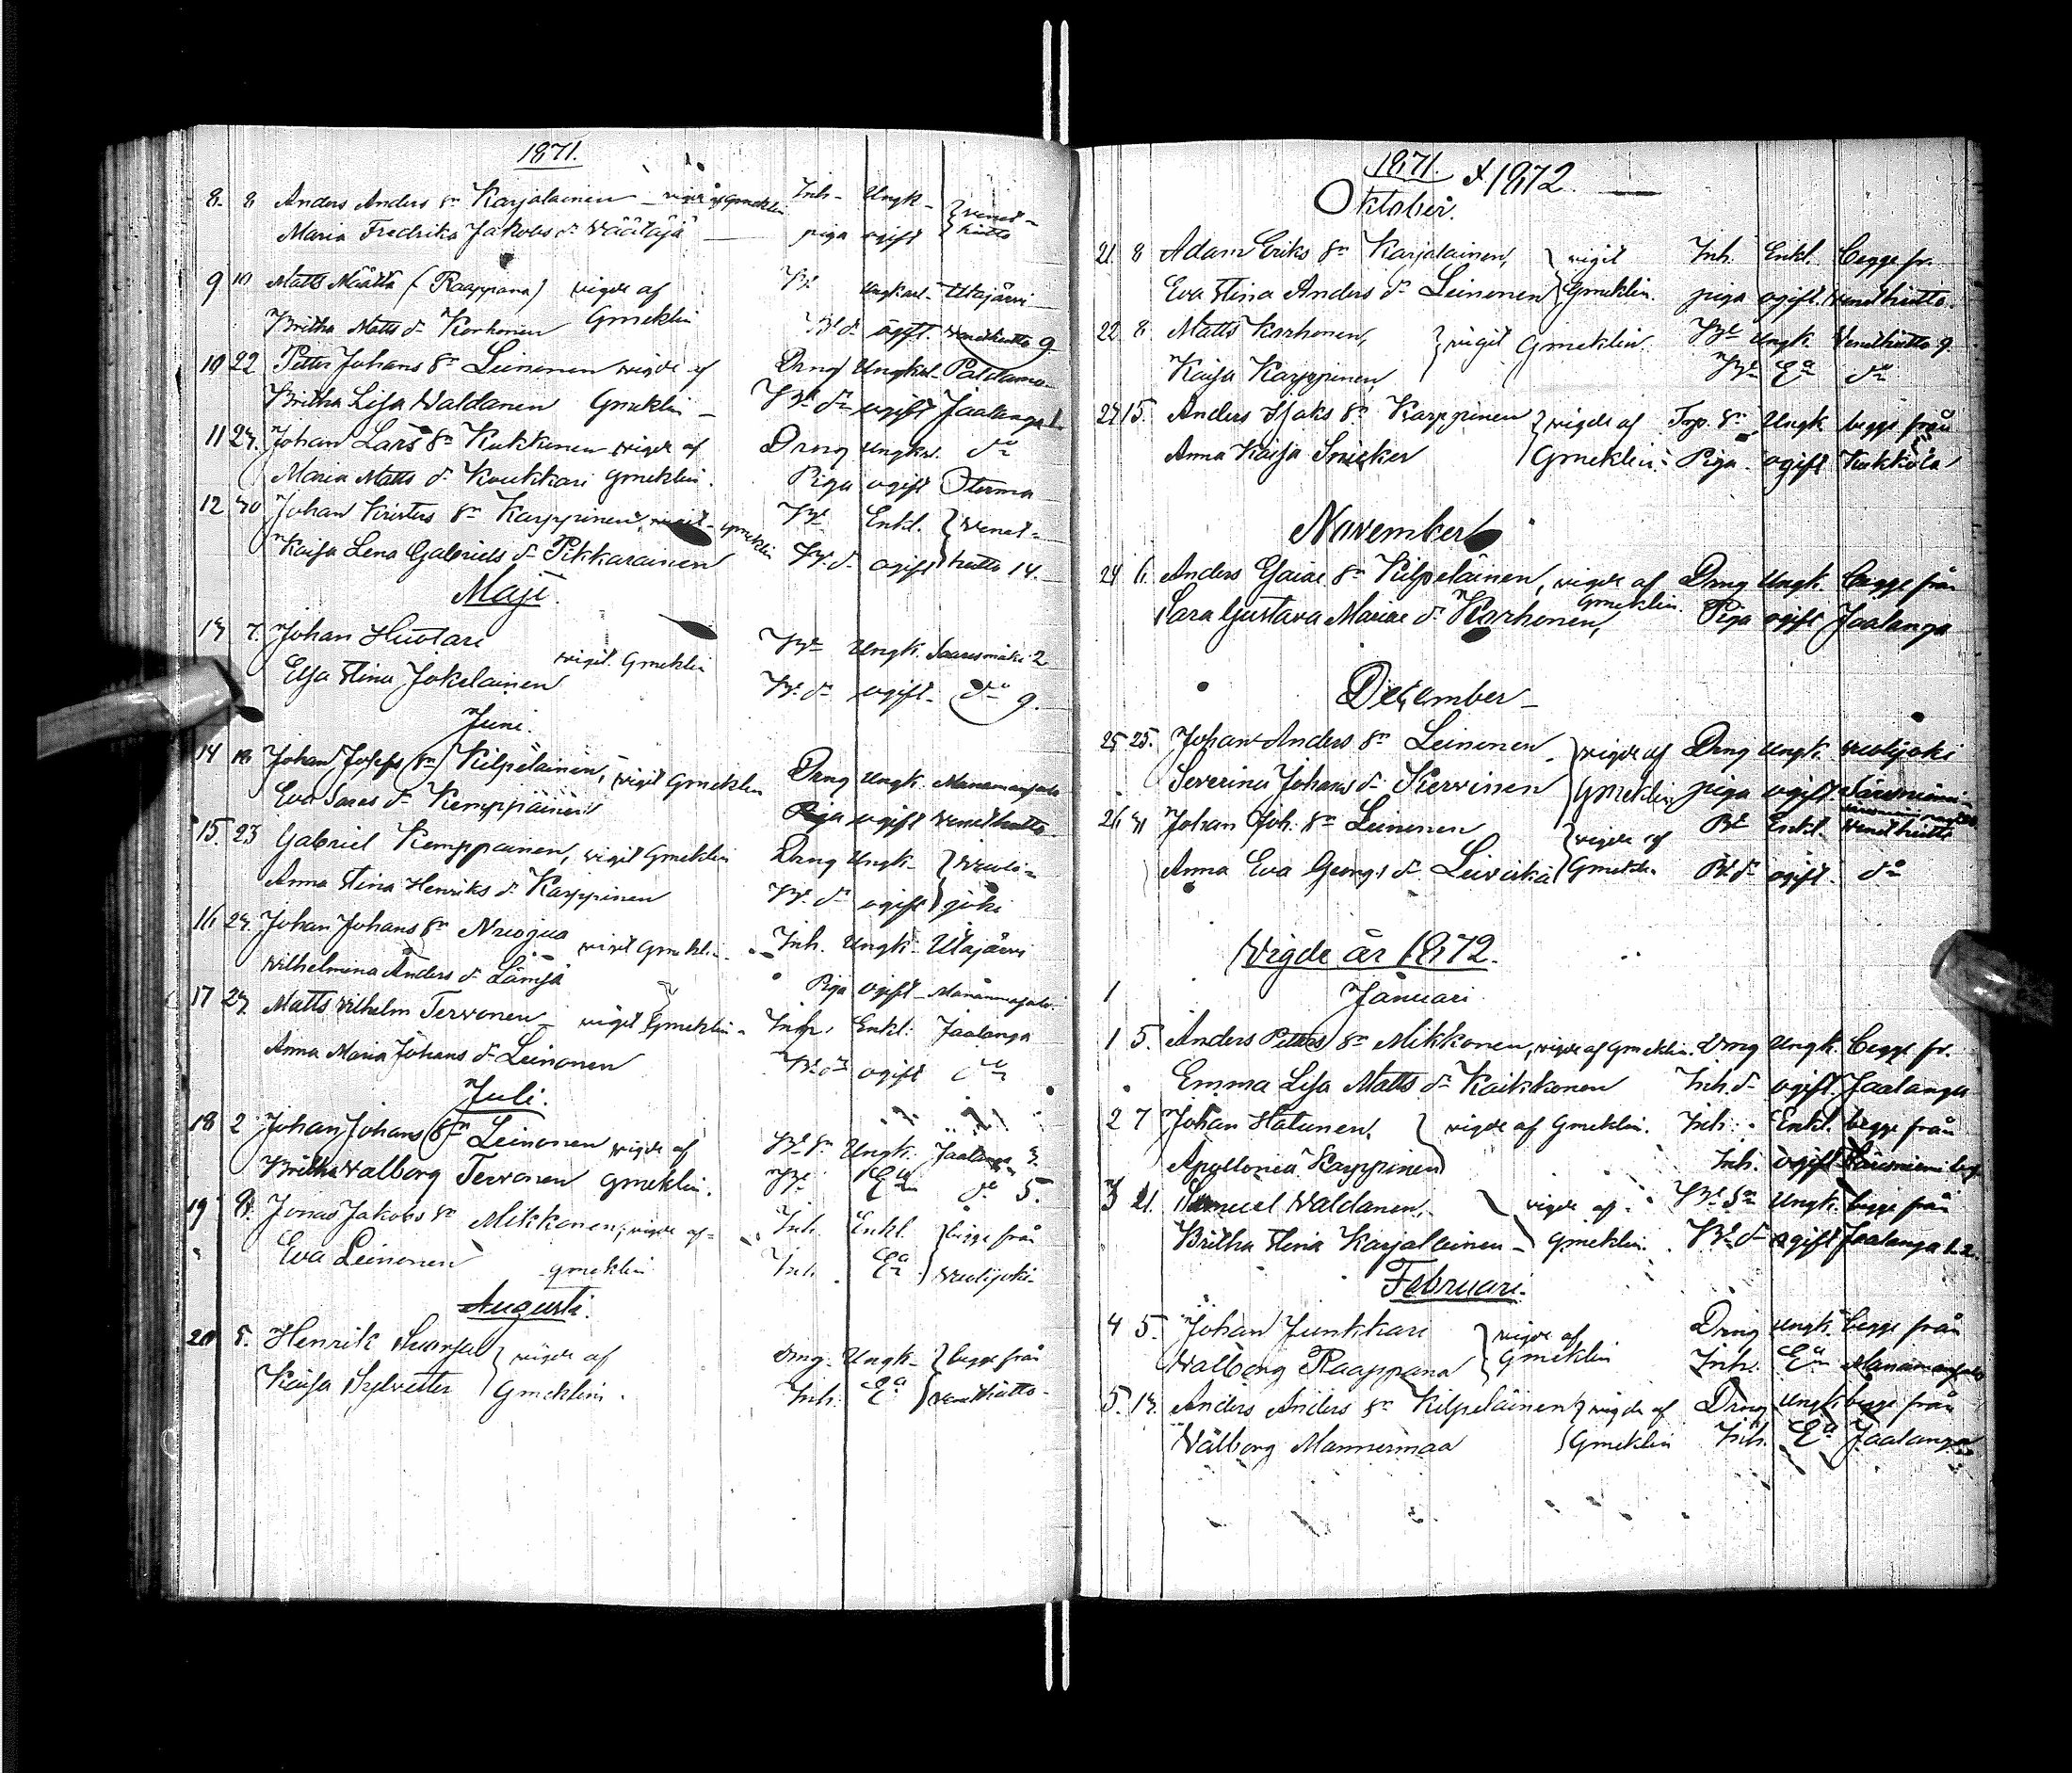 1871.
8. 8 Anders Anders sn Karjalainen vigde af Gmeklin Inh. Ungk. venet-
Maria Fredrika Jakobs dr Väätäjä piga ogift hiitto
9 10 Matts Määttä (Raappana) vigde af Ungkarl. Utajärvi
Britha Matts dr Korhonen Gmeklin Bd dr ogift. Venethiitto 9
10 22 Petter Johans sn Leinonen vigde af Dräng Ungkarl. Paldamo
Britha Lisa Waldanen Gmeklin Bd dr ogift Jaalanga 1.
11 23. Johan Lars sn Kukkonen vigde af Dräng Ungkarl. do
Maria Matts dr Koukkari Gmeklin. Piga ogift Oterma
12 30 Johan Kristers sn Karppinen, vigd Gmeklin Bd Enkl. Venet-
Kaisa Lena Gabriels dr Pikkarainen Bd. dr ogift hiitto 14.
Maji.
13 7. Johan Huotari Bd Ungk. Saaresmäki 2
vigd. Gmeklin
Elsa Stina Jokelainen Bd. dr ogift. do 9.
Juni.
14 18 Johan Josefs sn Kilpeläinen, vigd Gmeklin Dräng Ungk. Manamansalo
Eva Saras dr Kemppäinen Piga ogift Venethiitto
15. 23 Gabriel Kemppainen, vigd Gmeklin Dräng Ungk. Vuoli-
Anna Stina Henriks dr Karppinen Bd. dr ogift joki
16 24. Johan Johans sn vigd Gmeklin Inh. Ungk. Utajärvi
Wilhelmina Anders dr Lämsä Piga ogift Manamansalo
17 24 Matts Vilhelm Tervonen vigd Gmeklin Inh. Enkl. Jaalanga
Anna Maria Johans dr Leinonen Bd. dr ogift do
Juli.
18 2 Johan Johans sn Leinonen vigde af Bd sn Ungk. Jaalanga 3.
Britha Walborg Tervonen Gmeklin. Bd Ea do 5.
19 8. Jonas Jakobs sn Mikkonen, vigde af Inh. Enkl. begge från
Eva Leinonen Gmeklin Inh. Ea Vuolijoki
Augusti.
20 5. Henrik vigde af Dräng Ungk. begge från
Kaisa Sylvester Gmeklin. Inh. Ea Venethiitto
1871. & 1872.
Oktober.
21 8 Adam Eriks sn Karjalainen, vigd Inh. Enkl. begge fr.
Eva Stina Anders dr Leinonen Gmeklin. piga ogift. Venethiitto.
22 8. Matts Korhonen, vigd Gmeklin. Bd Ungk. Venethiitto 9.
Kaisa Karppinen Bd Ea do
23 15. Anders Isaks sn Karppinen vigde af Torp. sn Ungk begge från
Anna Kaisa Smicker Gmeklin. Piga ogift Kukkola
November
24 6. Anders Esaiae sn Kilpeläinen, vigde af Dräng Ungk. begge från
Sara Gustava Mariae dr Korhonen, Gmeklin. Piga ogift Jaalanga
December
25 25. Johan Anders sn Leinonen vigde af Dräng Ungk. Vuolijoki
Severina Johans dr Kervinen Gmeklin piga ogift. Säresniemi
26 31 Johan Joh. sn Leinonen vigde af Bd Enkl. Venethiitto
Anna Eva Georgs dr Leiviskä Gmeklin Bd dr ogift. do
Vigde år 1872.
1 Januari
1 5. Anders Petters sn Mikkonen, vigde af Gmeklin. Dräng Ungk. begge fr.
Emma Lisa Matts dr Kaikkonen Inh. dr ogift. Jaalanga
2 7 Johan Hatunen, vigde af Gmeklin. Inh. Enkl. begge från
Apollonia Karppinen Inh. ogift Säresniemi
3 21. Samuel Waldanen, vigde af Bd sn Ungk. begge från
Britha Stina Karjalainen Gmeklin. Bd dr ogift Jaalanga 12.
Februari.
4 5. Johan Junkkari vigde af Dräng Ungk. begge från
Walborg Raappana Gmeklin Inh. Ea Manamansalo
5. 13. Anders Anders sn Kilpeläinen vigde af Dräng Ungk begge från
Walborg Mannermaa Gmeklin Inh. Ea Jaalanga